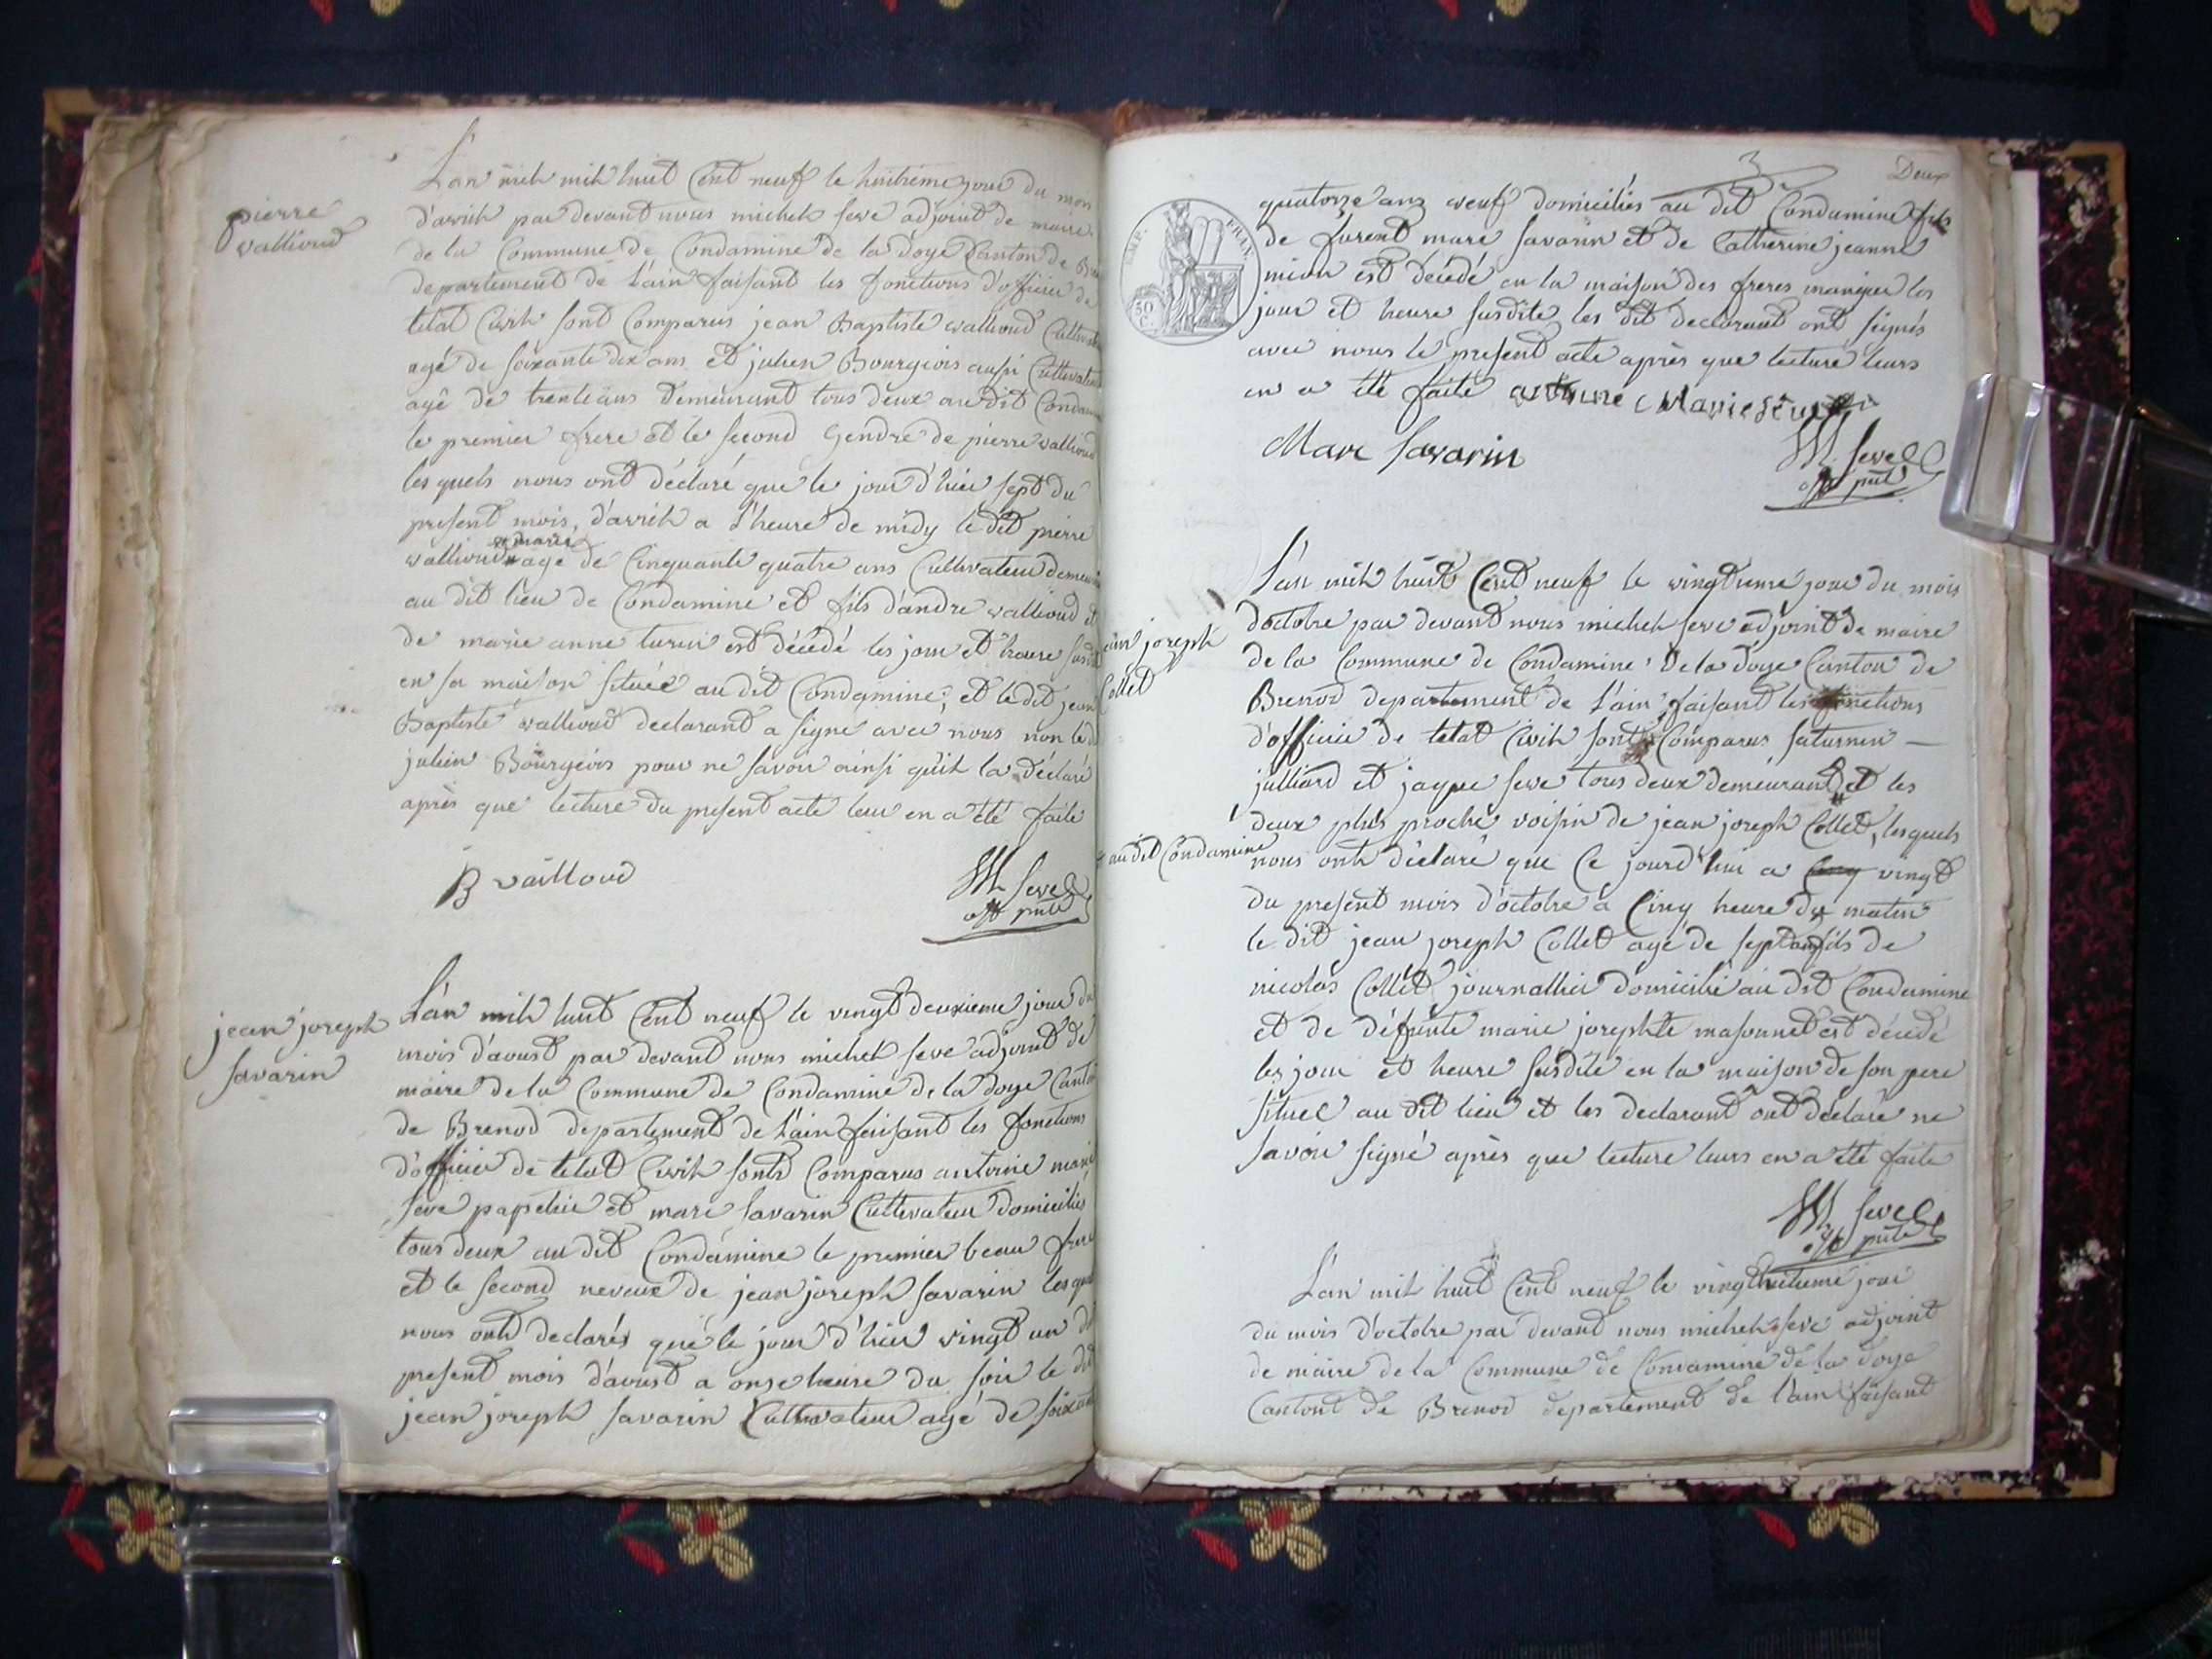 pierre
wallioud
L'an mil mil huit Cent neuf le huitieme jour du mois
d'avril par devant nous michel seve adjoint de maire
de la Commune de Condamine de la doye Canton de
departement de L'ain faisant les fonctions d'officier de
letat Civil sont Comparus jean Baptiste wallioud
agé de soixante dix ans et julien Bourgeois aussi
agé de trente ans demeurant tous deux au dit
le premier frere et le second Gendre de pierre wallioud
les quels nous ont déclaré que le jour d'hier sept du
present mois, d'avril a l'heure de midy le dit pierre
marié
wallioud agé de Cinquante quatre ans Cultivateur
au dit lieu de Condamine et fils d'andre wallioud et
de marie anne est décédé les jour et heure
en sa maison située audit Condamine, et ledit jean
Baptiste wallioud declarant a signé avec nous non le d
julien Bourgeois pour ne savoir ainsi qu'il la déclaré
après que lecture du present acte leur en a été faite
B vailloud
M Seve
off publ
jean joreph
savarin
L'an mil huit Cent neuf le vingt deuxieme jour du
mois d'aoust par devant nous michel seve adjoint de
maire de la Commune de Condamine de la doye
de Brenod departement de L'ain faisant les fonctions
d'officier de letat Civil sont Comparus antoine marie
seve papetier et marc savarin Cultivateur domiciliés
tous deux au dit Condamine le premier beau frere
et le second neveux de jean joreph savarin
nous ont declarés que le jour d'hier vingt un
present mois d'aoust a onse heure du soir le dit
jean joreph savarin Cultivateur agé de
Deux
EMP. FRAN.
50
C.
quatorze ans veuf domiciliés au dit Condamine fils
de marc savarin et de Catherine jeanne
est décédé en la maison des freres les
jour et heure susdite les dit declarant ont signés
avec nous le present acte après que lecture leurs
en a été faite antoine Marie seve
Marc Savarin
M. seve
off publ
L'an mil huit Cent neuf le vingtieme jour du mois
doctobre par devant nous michel seve adjoint de maire
de la Commune de Condamine de la doye Canton de
Brenod departement de L'ain, faisant les fonctions
d'officier de letat Civil sont Comparus saturnin —
jean joreph
Collet
julliard et jaque seve tous deux demeurant et les
deux plus proche voisin de jean joreph Collet, lesquels
au dit Condamine
nous ont déclaré que Ce jourd'hui a vingt
du present mois d'octobre à Cinq heure du matin
le dit jean joreph Collet agé de sept ans fils de
nicolas Collet journallier domicilié au dit Condamine
et de défunte marie jorephte masonnet est décédé
les jour et heure susdite en la maison de son pere
situeé au dit lieu et les declarant ont déclaré ne
savoir signé après que lecture leurs en a été faite
M. seve
off publ
L'an mil huit Cent neuf le vingthuitieme jour
du mois d'octobre par devant nous michel seve adjoint
de maire de la Commune de Condamine de la doye
Cantont de Brenod departement de l'ain faisant